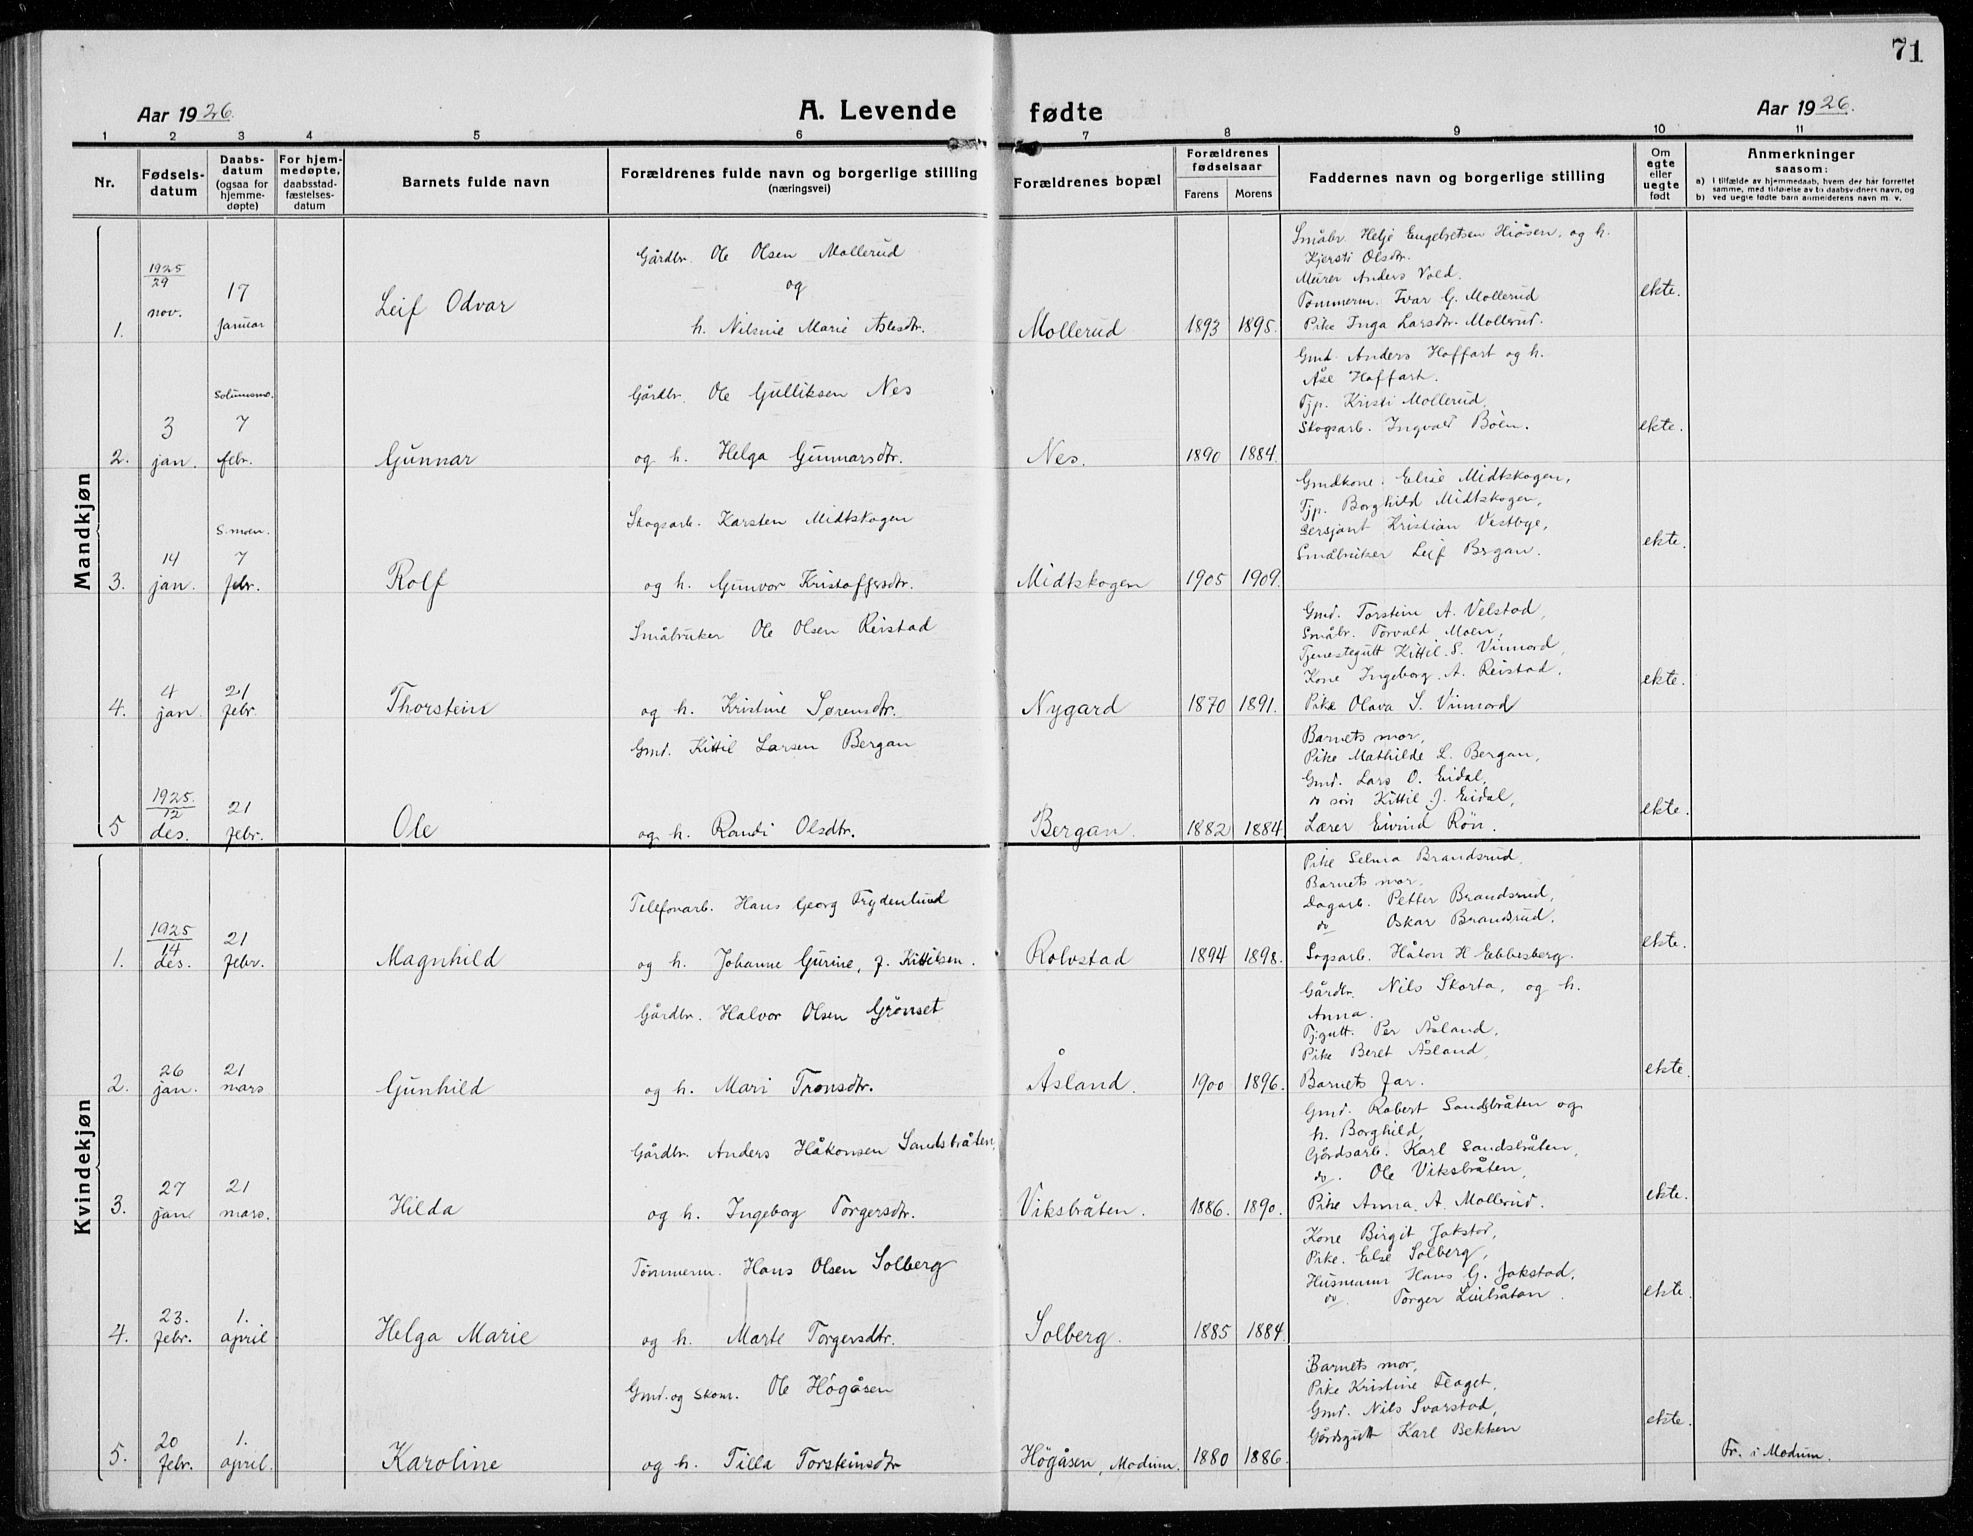 71
Aar 1926.
A. Levende fødte
Aar 1926.
1 2 3 4 5 6 7 8 9 10 11
Nr.
Fødsels-
datum
Daabs-
datum
(ogsaa for
hjemme-
døpte)
For hjem-
medøpte,
daabsstad-
fæstelses-
datum
Barnets fulde navn
Forældrenes fulde navn og borgerlige stilling
(næringsvei)
Forældrenes bopæl
Forældrenes
fødselsaar
Farens Morens
Faddernes navn og borgerlige stilling
Om
egte
eller
uegte
født
Anmerkninger
saasom:
a) i tilfælde av hjemmedaab, hvem der har forrettet
samme, med tilføielse av to daabsvidners navn, og
b) ved uegte fødte barn anmelderens navn m. v.
Mandkjøn
1.
1925
29
nov.
17
Januar
Leif Odvar
Gårdbr. Ole Olsen Mollerud
og
h. Nilsine Marie Aslesdtr.
Mollerud
1893 1895.
Småbr. Helje Engebretsen Hiåsen, og h.
Kjersti Olsdtr.
Murer Anders Vold.
Tømmerm. Ivar G. Mollerud
Pike Inga Larsdtr. Mollerud.
ekte.
2.
3
jan.
Solumsmo.
7
febr.
Gunnar
Gårdbr. Ole Gulliksen Nes
og h. Helga Gunnarsdtr.
Nes.
1890 1884.
Gmd. Anders Hoffart og h.
Åse Hoffart.
Tjp. Kristi Mollerud.
Skogsarb. Ingvald Bøen.
ekte.
3.
14
jan.
S. moen.
7
febr.
Rolf
Skogsarb. Karsten Midtskogen
og h. Gunvor Kristoffersdtr.
Midtskogen
1905 1909.
Gmdkone. Elise Midtskogen,
Tjp. Borghild Midtskogen,
Sersjant Kristian Vestbye,
Småbruker Leif Bergan.
ekte.
4.
4
jan.
21
febr.
Thorstein
Småbruker Ole Olsen Reistad
og h. Kristine Sørensdtr.
Nygard
1870 1891.
Gmd. Torstein A. Velstad,
Småbr. Torvald Moen,
Tjenestegutt Kittil S. Vinnord,
Kone Ingeborg A. Reistad.
Pike Olava S. Vinnord
ekte.
5
1925.
12
des.
21
febr.
Ole
Gmd. Kittil Larsen Bergan
og h. Randi Olsdtr.
Bergan.
1882 1884.
Barnets mor,
Pike Mathilde L. Bergan,
Gmd. Lars O. Eidal,
do søn Kittil J. Eidal,
Lærer Eivind Røn.
ekte.
Kvindekjøn
1.
1925
14
des.
21
febr.
Magnhild
Telefonarb. Hans Georg Frydenlund
og h. Johanne Gurine, f. Kittilsen.
Rolvstad
1894 1898.
Pike Selma Brandsrud,
Barnets mor,
Dagarb. Petter Brandsrud,
do Oskar Brandsrud.
Sagsarb. Håkon H. Ebbesberg.
ekte.
2.
26
jan.
21
mars
Gunhild
Gårdbr. Halvor Olsen Grønset
og h. Mari Tronsdtr.
Åsland.
1900 1896.
Gårdbr. Nils Skarta, og h.
Anna.
Tj.gutt. Per Åsland,
Pike Beret Åsland,
Barnets far.
ekte.
3.
27
jan
21
mars.
Hilda
Gårdbr. Anders Håkonsen Sandsbråten,
og h. Ingeborg Torgersdtr.
Viksbråten.
1886. 1890.
Gmd. Robert Sandsbråten og
h. Borghild,
Gårdsarb. Karl Sandsbråten,
do. Ole Viksbråten,
Pike Anna A. Mollerud.
ekte.
4.
23.
febr.
1.
april
Helga Marie
Tømmerm. Hans Olsen Solberg
og h. Marte Torgersdtr.
Solberg.
1885 1884.
Kone Birgit Jokstad,
Pike. Else Solberg,
Husmann Hans G. Jokstad,
do. Torger Liabråtan.
ekte.
5.
20
febr.
1.
april.
Karoline
Gmd. og Skom. Ole Høgåsen
og h. Tilla Torsteinsdtr
Høgåsen, Modum.
1880 1886.
Barnets mor,
Pike Kristine Flaget,
Gmd. Nils Svarstad,
Gårdsgutt Karl Bekken
ekte.
Fr. i Modum.